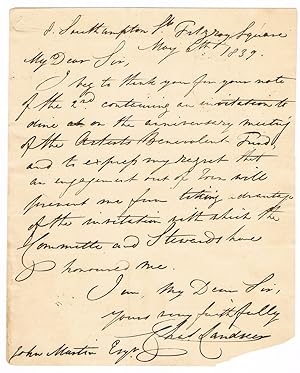 8. Southampton St. Fitzroy Square
May 5th 1839.
My Dear Sir,
I beg to thank you for your note
of the 2nd containing an invitation to
dine on the anniversary meeting
of the Artists Benevolent Fund,
and to express my regret that
an engagement out of Town will
prevent me from taking advantage
of the invitation with which the
Committee and Stewards have
honoured me.
I am, My Dear Sir,
Yours very faithfully
Chas Landseer
John Martin Esqr.